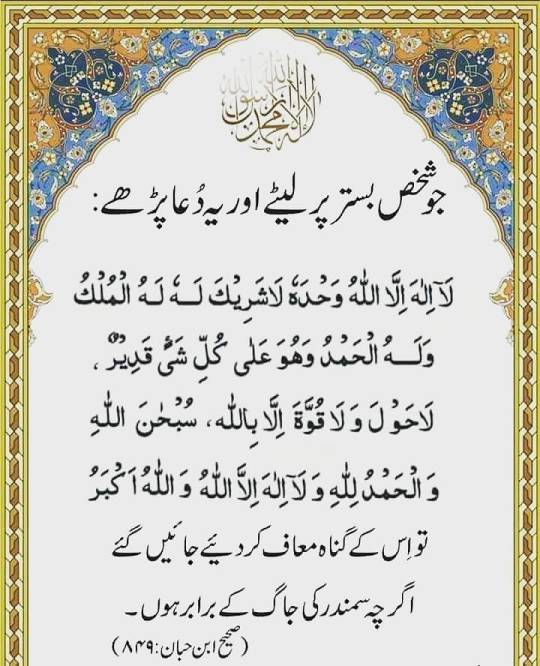 لا اله الا الله محمد رسول الله
جو شخص بستر پر لیٹے اور یہ دُعا پڑھے:
لَآ اِلٰهَ اِلَّا اللّٰهُ وَحْدَهٗ لَاشَرِيْكَ لَـهٗ لَهُ الْمُلْكُ
وَلَـهُ الْحَمْدُ وَهُوَ عَلٰى كُلِّ شَىْءٍ قَدِيْرٌ ،
لَاحَوْلَ وَلَا قُوَّةَ اِلَّا بِاللّٰه، سُبْحٰنَ اللّٰهِ
وَالْحَمْدُ لِلّٰهِ وَلَآ اِلٰهَ اِلاَّ اللّٰهُ وَاللّٰهُ اَكْبَرُ
تو اِس کے گناہ معاف کر دیئے جائیں گے
اگرچہ سمندر کی جاگ کے برابر ہوں۔
(صحیح ابن حبان:۸۴۹)